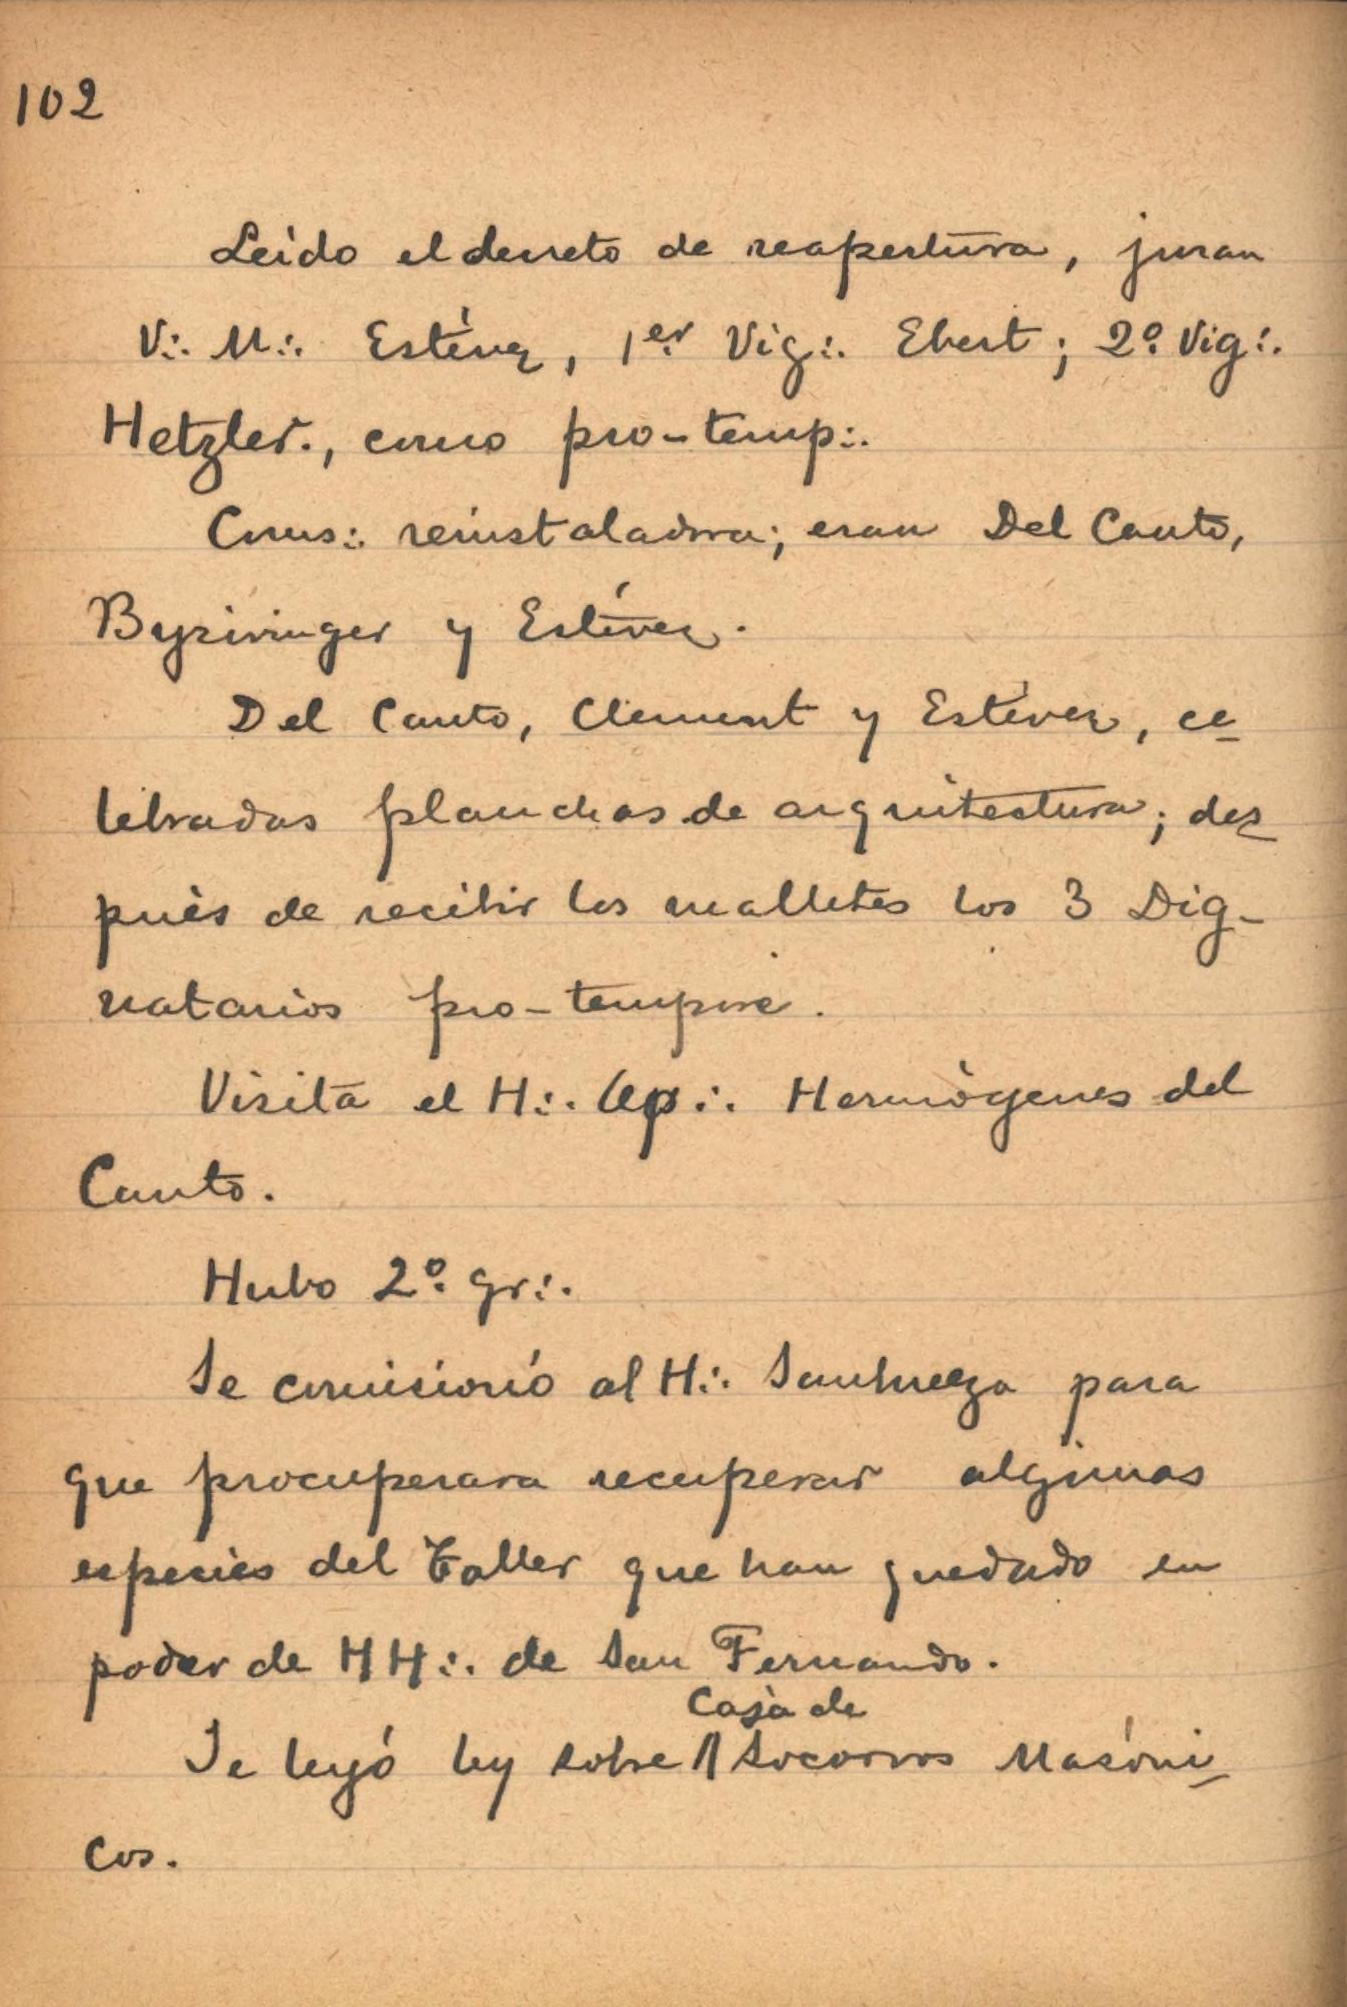 102
Leido el decreto de reapertura, juran
V∴ M∴ Estévez, 1er Vig∴ Ebert; 2º Vig∴
Hetzler., como pro-temp∴
Coms∴ reinstaladora; eran Del Canto,
Byzivinger y Estévez.
Del Canto, Clement y Estévez, ce-
lebradas planchas de arquitectura; des-
pués de recibir los malletes los 3 Dig-
natarios pro-tempore.
Visita el H∴ Ap∴ Hermógenes del
Canto.
Hubo 2º gr∴
Se comisionó al H∴ Sanhueza para
que procuperara recuperar algunas
especies del Taller que han quedado en
poder de HH∴ de San Fernando.
Caja de
Se leyó ley sobre Socorros Masóni-
cos.